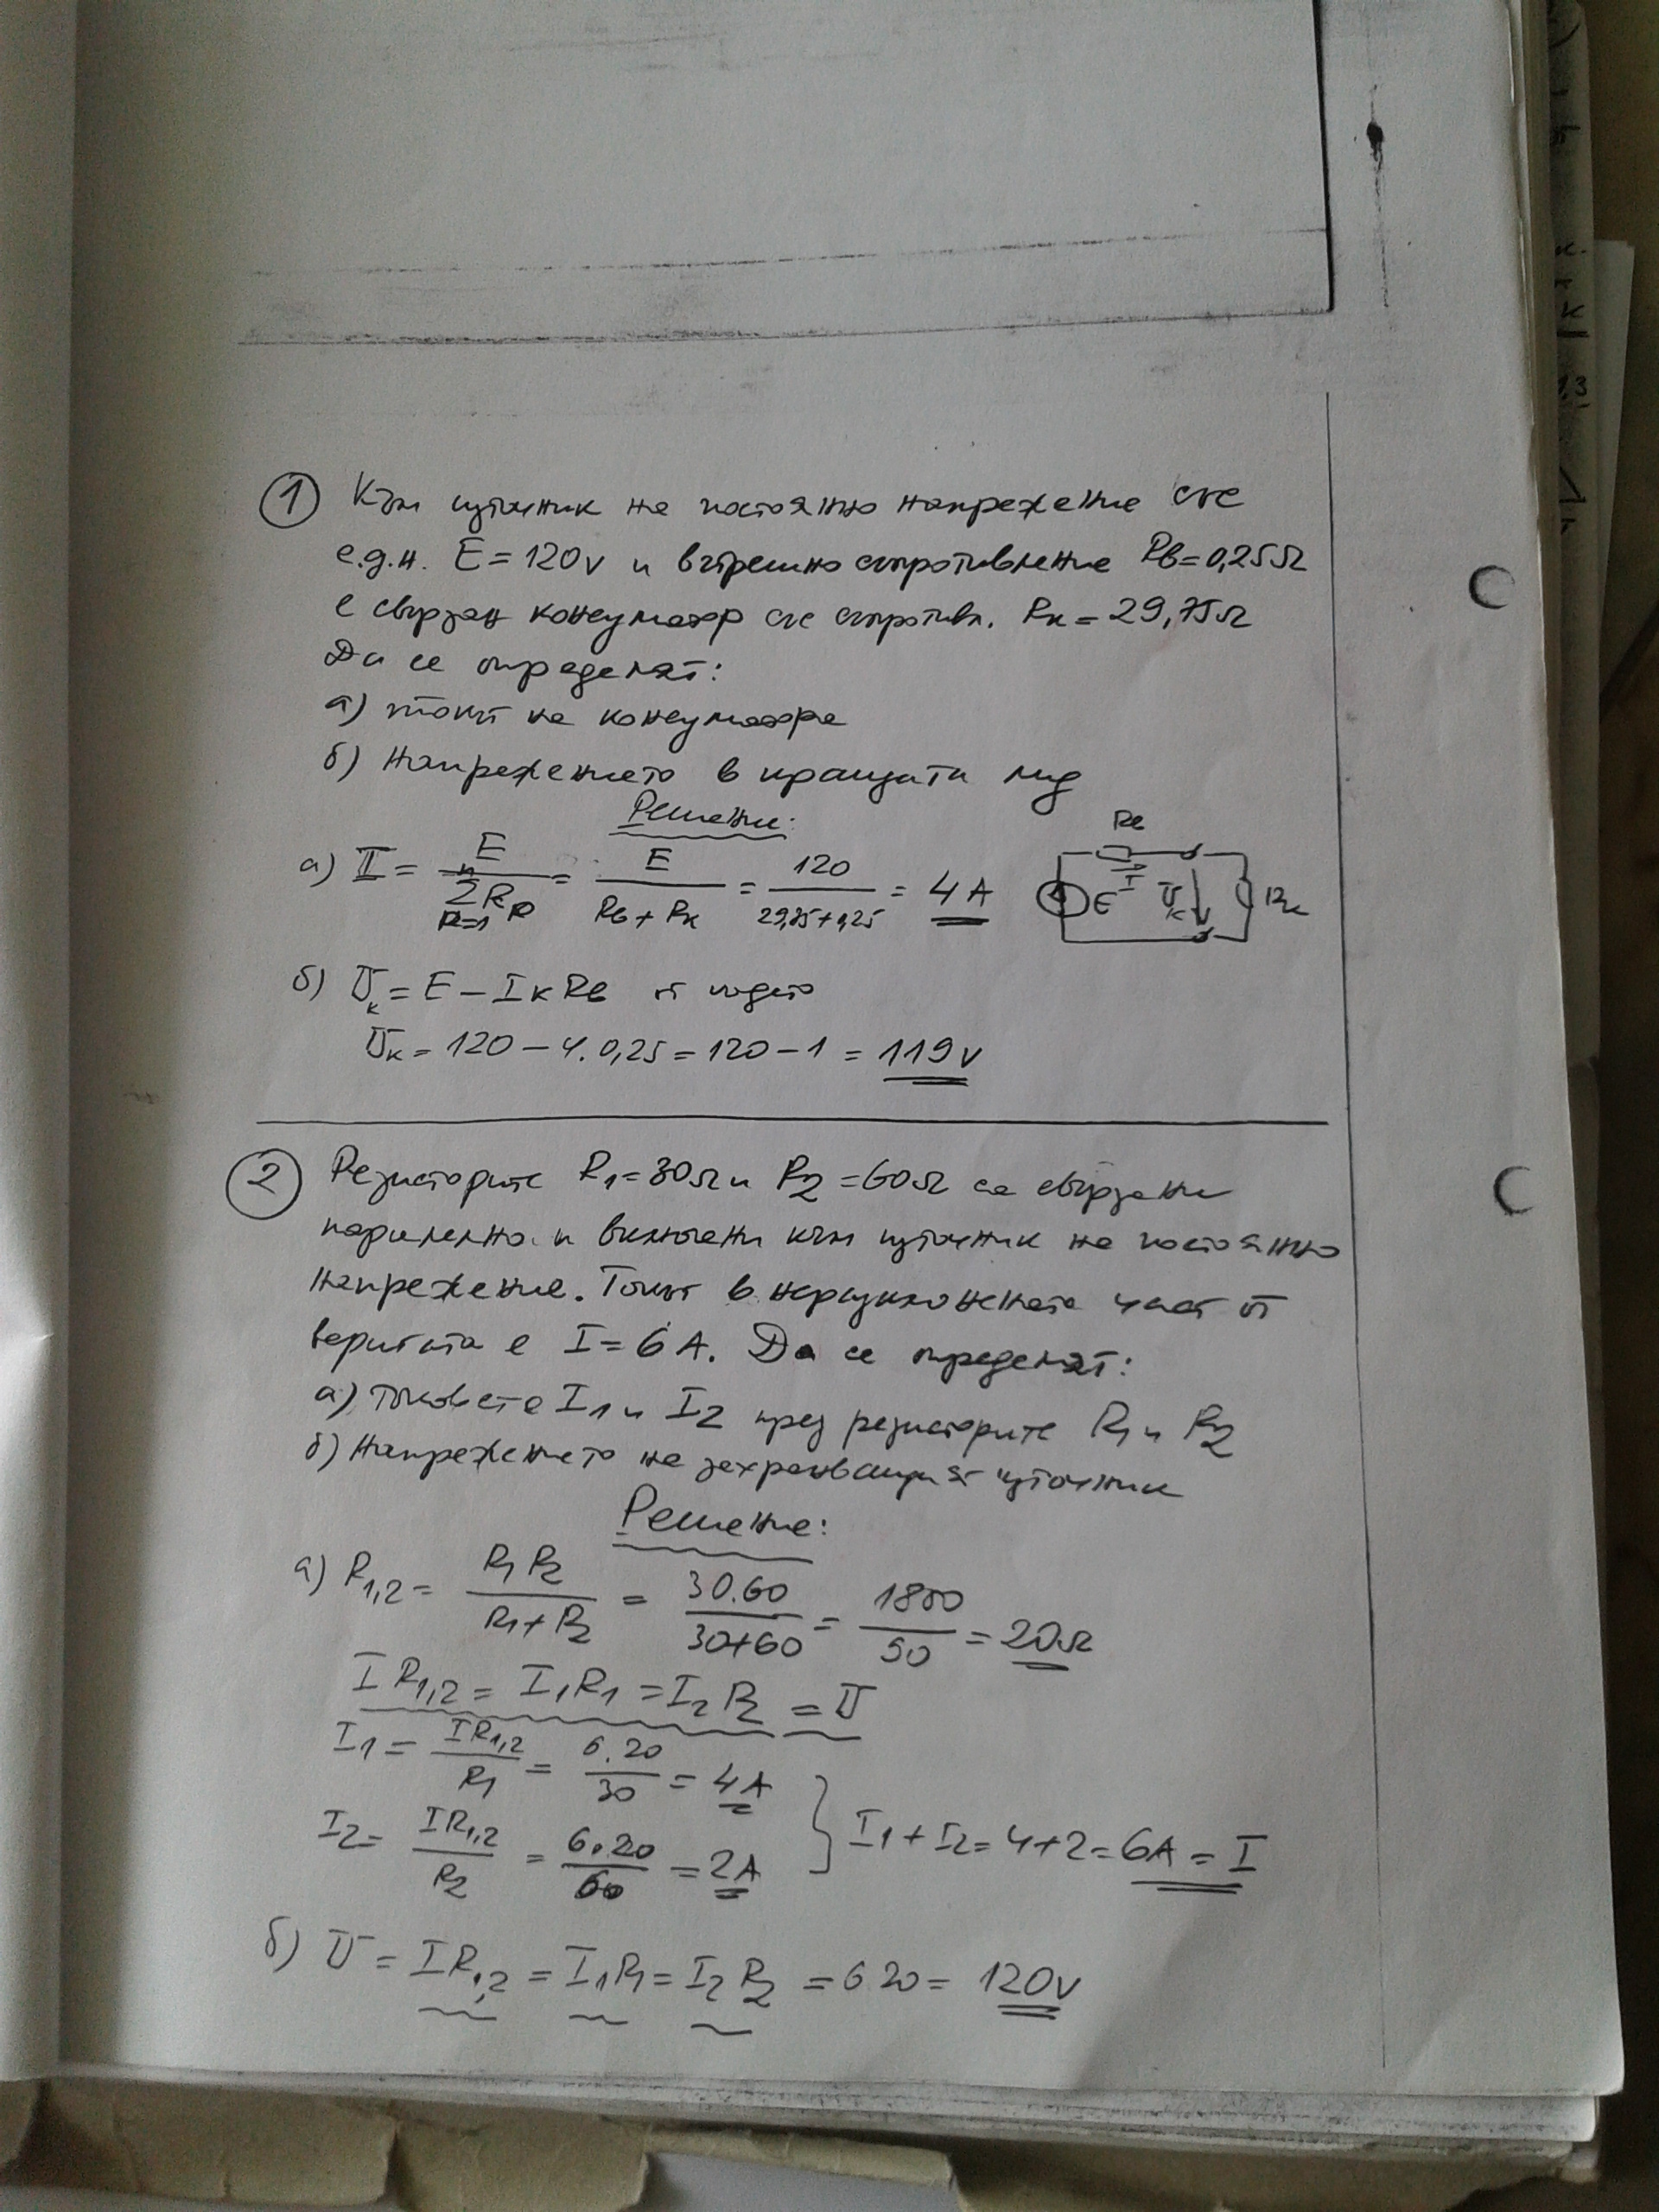 1 Към източник на постоянно напрежение със
е.д.н. E = 120V и вътрешно съпротивление Rв = 0,25Ω
е свързан консуматор със съпротивл. Rк = 29,75Ω
Да се определят:
а) токът на консуматора
б) Напрежението в краищата му
Решение:
а) I = E / Σ Rn = E / Rв + Rк = 120 / 29,75 + 0,25 = 4A
n
R=1
Rв
I
E
Uк
Rк
б) Uк = E – Iк Rв от където
Uк = 120 – 4.0,25 = 120 – 1 = 119V
2 Резисторите R1 = 30Ω и R2 = 60Ω са свързани
паралелно и включени към източник на постоянно
напрежение. Токът в неразклонената част от
веригата е I = 6A. Да се определят:
а) Токовете I1 и I2 през резисторите R1 и R2
б) Напрежението на захранващия източник
Решение:
а) R1,2 = R1 R2 / R1 + R2 = 30.60 / 30+60 = 1800 / 90 = 20Ω
I R1,2 = I1 R1 = I2 R2 = U
I1 = I R1,2 / R1 = 6.20 / 30 = 4A
I2 = I R1,2 / R2 = 6.20 / 60 = 2A } I1 + I2 = 4+2 = 6A = I
б) U = I R1,2 = I1 R1 = I2 R2 = 6.20 = 120V